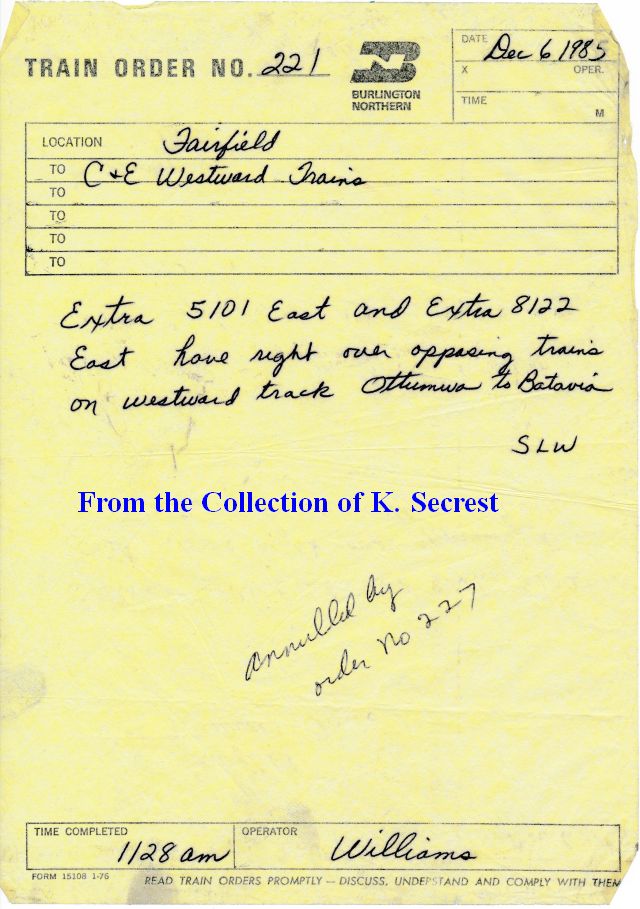 TRAIN ORDER NO. 221
BURLINGTON
NORTHERN
DATE Dec 6 1985
X OPER.
TIME
M
LOCATION Fairfield
TO C&E Westward Trains
TO
TO
TO
TO
Extra 5101 East and Extra 8122
East have right over opposing trains
on westward track Ottumwa to Batavia
SLW
From the Collection of K. Secrest
annulled by
order No 227
TIME COMPLETED 1128 am OPERATOR Williams
FORM 15108 1-76
READ TRAIN ORDERS PROMPTLY — DISCUSS, UNDERSTAND AND COMPLY WITH THEM